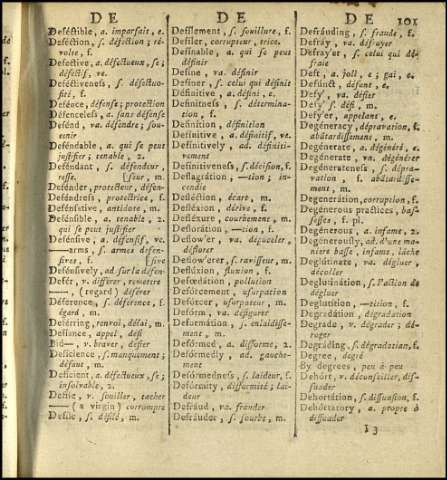 DE
Deféctible, a. imparfait, e.
Deféction, s. défection; ré-
volte, f.
Deféctive, a. défectueux, se;
défectif, ve.
Deféctiveness, s. défectuo-
sité, f.
Defénce, défense; protection
Defénceless, a. sans défense
Defénd, va. défendre; sou-
tenir
Deféndable, a. qui se peut
justifier; tenable, 2.
Deféndant, s. défendeur,
resse. [sseur, m.
Defénder, protecteur, défen-
Deféndress, protectrice, f.
Defénsative, antidote, m.
Defénsible, a. tenable, 2.
qui se peut justifier
Defénsive, a. défensif, ve.
—arms, s. armes défen-
sives, f. [sive
Defénsively, ad. sur la défen-
Defér, v. différer, remettre
—, (regard) déférer
Déference, s. déférence, f.
égard, m.
Deférring, renvoi, délai, m.
Defíance, appel, défi
Bid—, v. braver, défier
Deficience, s. manquement;
défaut, m.
Deficient, a. défectueux, se;
insolvable, 2.
Defile, v. souiller, tacher
— (a virgin) corrompre
Defile, s. défilé, m.
DE
Defílement, s. souillure, f.
Defiler, corrupteur, trice.
Definable, a. qui se peut
définir
Define, va. définir
Definer, s. celui qui définit
Définitive, a. défini, e.
Définitness, s. détermina-
tion, f.
Definition, définition
Definitive, a. définitif, ve.
Definitively, ad. définiti-
vement
Definitiveness, s. décision, f.
Deflagrátion, —tion; in-
cendie
Defléction, écart, m.
Defléxion, dérive, f.
Defléxure, courbement, m.
Deflorátion, —tion, f.
Deflow'er, va. dépuceler,
déflorer
Deflow'erer, s. ravisseur, m.
Deflúxion, fluxion, f.
Defœdátion, pollution
Defórcement, usurpation
Defórcer, usurpateur, m.
Defórm, va. défigurer
Deformátion, s. enlaidisse-
ment, m.
Defórmed, a. difforme, 2.
Defórmedly, ad. gauche-
ment
Defórmedness, s. laideur, f.
Defórmity, difformité; lai-
deur
Defráud, va. frauder
Defráuder, s. fourbe, m.
DE 101
Defráuding, s. fraude, f.
Defráy, va. défrayer
Defray'er, s. celui qui dé-
fraie
Deft, a. joli, e; gai, e.
Defúnct, défunt, e.
Defy', va. défier
Defy' s. défi, m.
Defy'er, appelant, e.
Degéneracy, dépravation, f.
abâtardissement, m.
Degénerate, a. dégénéré, e.
Degénerate, va. dégénérer
Degénerateness, s. dépra-
vation, f. abâtardisse-
ment, m.
Degenerátion, corruption, f.
Degénerous practices, bas-
sesses, f. pl.
Degénerous, a. infame, 2.
Degénerously, ad. d'une ma-
niere basse, infame, lâche
Deglútinate, va. dégluer,
décoller
Deglutinátion, s. l'action de
dégluer
Deglutítion, —tition, f.
Degradátion, dégradation
Degráde, v. dégrader; dé-
roger
Degráding, s. dégradation, f.
Degree, degré
By degrees, peu à peu
Dehórt, v. déconseiller, dis-
suader
Dehortátion, s. dissuasion, f.
Dehórtatory, a. propre à
dissuader
I 3